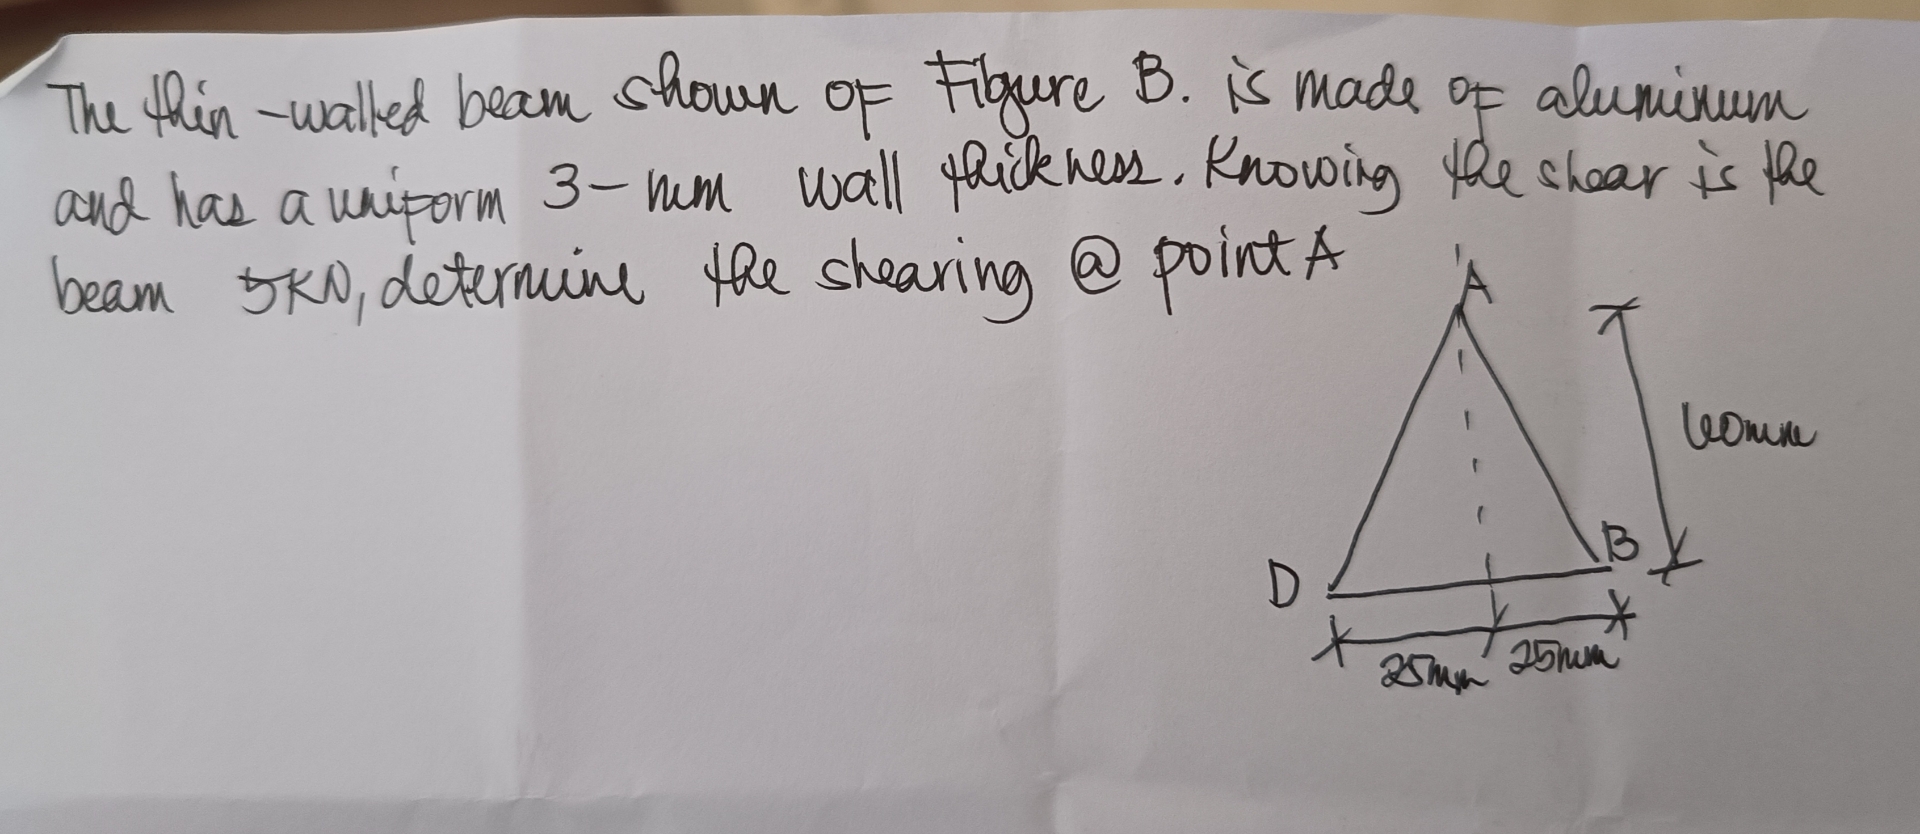 The thin-walled beam shown of Figure B. is made of aluminum
and has a uniform 3-mm wall thickness. Knowing the shear is the
beam 5KN, determine the shearing @ point A
A
60mm
B
D
25mm 25mm